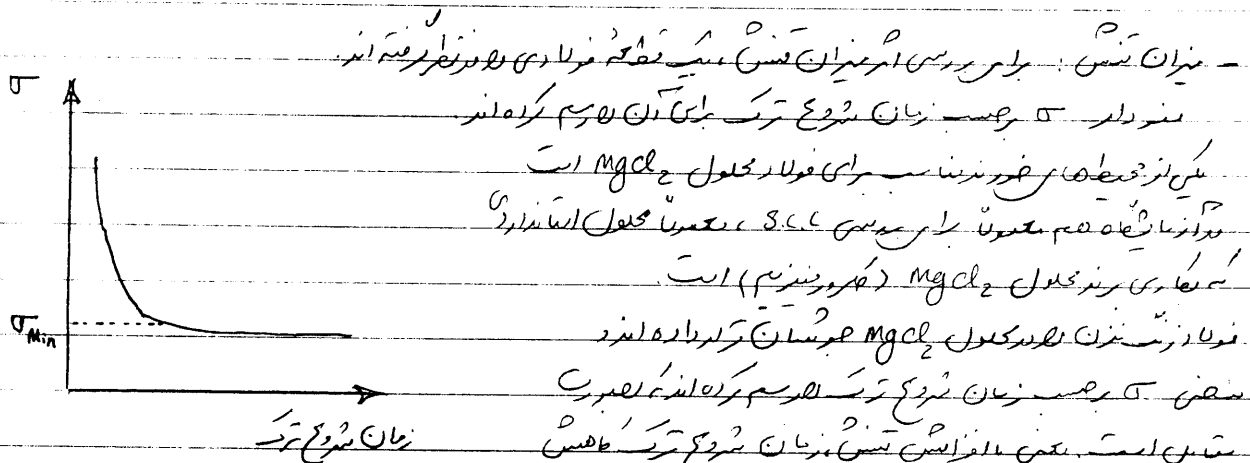 - میزان تنش : برای بررسی اثر میزان تنش ، یک قطعه فولادی را در نظر گرفته اند.
σ
نمودار σ برحسب زمان شروع ترک برای آن را رسم کرده اند.
یکی از محیط های خورنده مناسب برای فولاد محلول MgCl2 است
در آزمایشگاه هم معمولاً برای بررسی S.C.C ، معمولاً محلول استانداردی
که بکار می برند محلول MgCl2 (کلرور منیزیم) است.
σMin
فولاد زنگ نزن را در محلول MgCl2 جوشان قرار داده اند و
منحنی σ برحسب زمان شروع ترک را رسم کرده اند که بصورت
زمان شروع ترک
مقابل است. یعنی با افزایش تنش، زمان شروع ترک کاهش